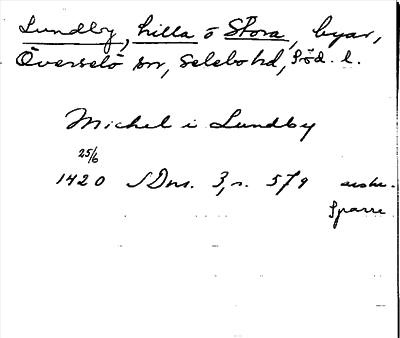 Lundby, Lilla o Stora, byar,
Överselö sn, Selebo hd, Söd. l.
Michel i Lundby
25/6
1420 SDns. 3, s. 579 avskr.
Sparre